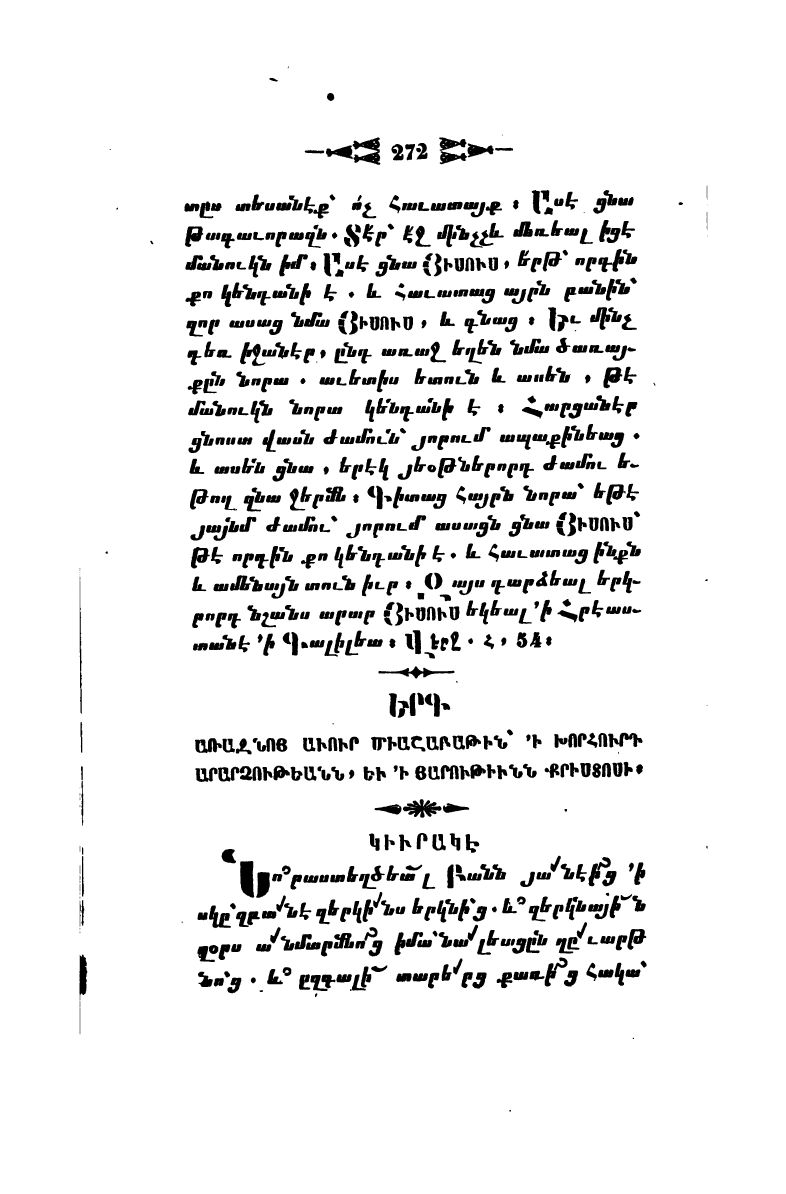 272
տըս տեսանէք՝ ո՛չ հաւատայք ։ Ըսէ ցնա
թագաւորազն . Տէր՝ է՛ջ մինչչև մեռեալ իցէ
մանուկն իմ ։ Ըսէ ցնա Յիսուս , ե՛րթ՝ որդին
քո կենդանի է . և հաւատաց այրն բանին՝
զոր ասաց նմա Յիսուս , և գնաց ։ Եւ մինչ
դեռ իջանէր , ընդ առաջ եղեն նմա ծառայ-
քըն նորա . աւետիս ետուն և ասեն , թէ
մանուկն նորա կենդանի է ։ Հարցանէր
ցնոսա վասն ժամուն՝ յորում ապաքինեաց .
և ասեն ցնա , երէկ յեօթներորդ ժամու ե-
թող զնա ջերմն ։ Գիտաց հայրն նորա՝ եթէ
յայնմ ժամու՝ յորում ասացն ցնա Յիսուս՝
թէ որդին քո կենդանի է . և հաւատաց ինքն
և ամենայն տուն իւր ։ Զայս դարձեալ երկ-
րորդ նշանս արար Յիսուս եկեալ ՚ի Հրէաս-
տանէ ՚ի Գալիլեա ։ Վերջ . Հ , 54 ։
ԵՐԳ
ԱՌԱՋՆՈՑ ԱՒՈՒՐ ՄԻԱՇԱԲԱԹԻՆ՝ ՚Ի ԽՈՐՀՈՒՐԴ
ԱՐԱՐՉՈՒԹԵԱՆՆ , ԵՒ ՚Ի ՅԱՐՈՒԹԻՒՆՆ ՔՐԻՍՏՈՍԻ ։
ԿԻՒՐԱԿԷ
Նո՞րաստեղծեա՜լ Բանն յա՛նէի՞ց ՚ի
սկը՝զբա՛նէ զերկի՛նս երկնի՝ց . և՞ զերկնայի՜ն
զօրս ա՛նմարմնո՞ց իմա՝նա՛լեացըն ղը՛ւարթ
նո՝ց . և՞ ըզգալի՜ տարե՛րց քառի՞ց հակա՝